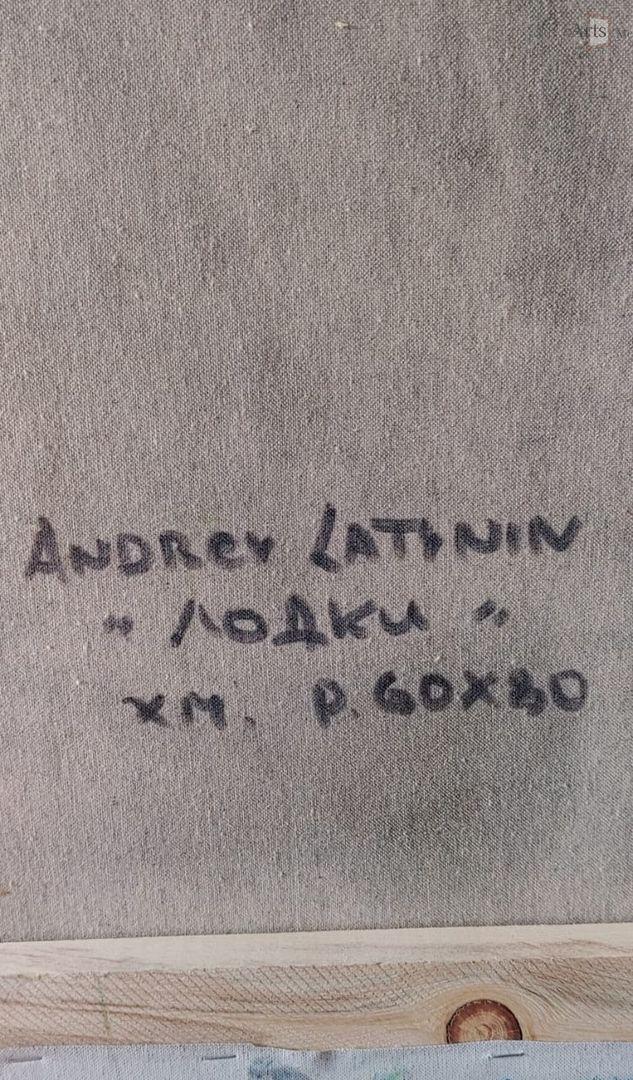 Arts
ANDREY LATYNIN
"ЛОДКИ"
ХМ. Р. 60X80